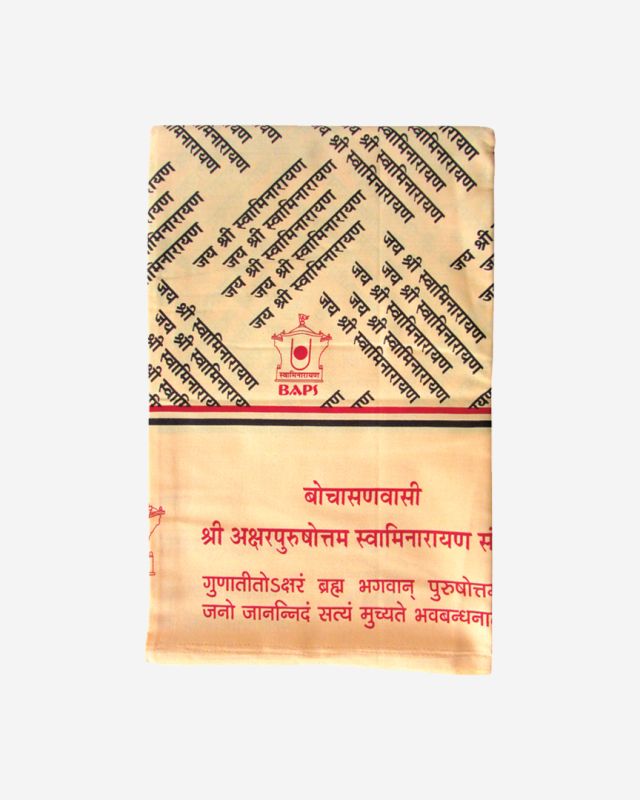 स्वामिनारायण
स्वामिनारायण
श्री स्वामिनारायण
श्री स्वामिनारायण
जय श्री स्वामिनारायण
जय श्री स्वामिनारायण
जय श्री स्वामिनारायण
जय श्री स्वामिनारायण
जय श्री स्वामिनारायण
जय श्री स्वामिनारायण
जय श्री स्वामिनारायण
जय श्री स्वामिनारायण
जय श्री स्वामिनारायण
जय श्री स्वामिनारायण
जय श्री स्वामिनारायण
जय श्री स्वामिनारायण
स्वामिनारायण
BAPS
बोचासणवासी
श्री अक्षरपुरुषोत्तम स्वामिनारायण सं
गुणातीतोऽक्षरं ब्रह्म भगवान् पुरुषोत्तम
जनो जानन्निदं सत्यं मुच्यते भवबन्धना